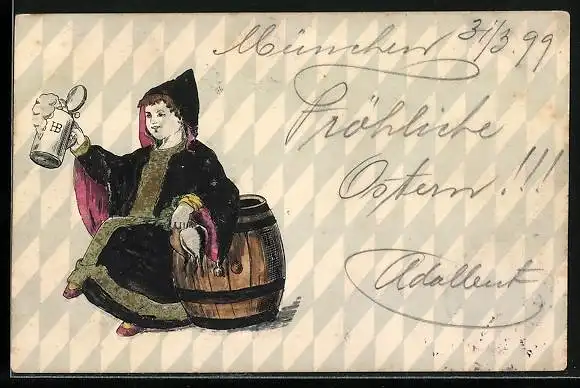 München 31/3.99
HB
Fröhliche
Ostern!!!
Adalbert